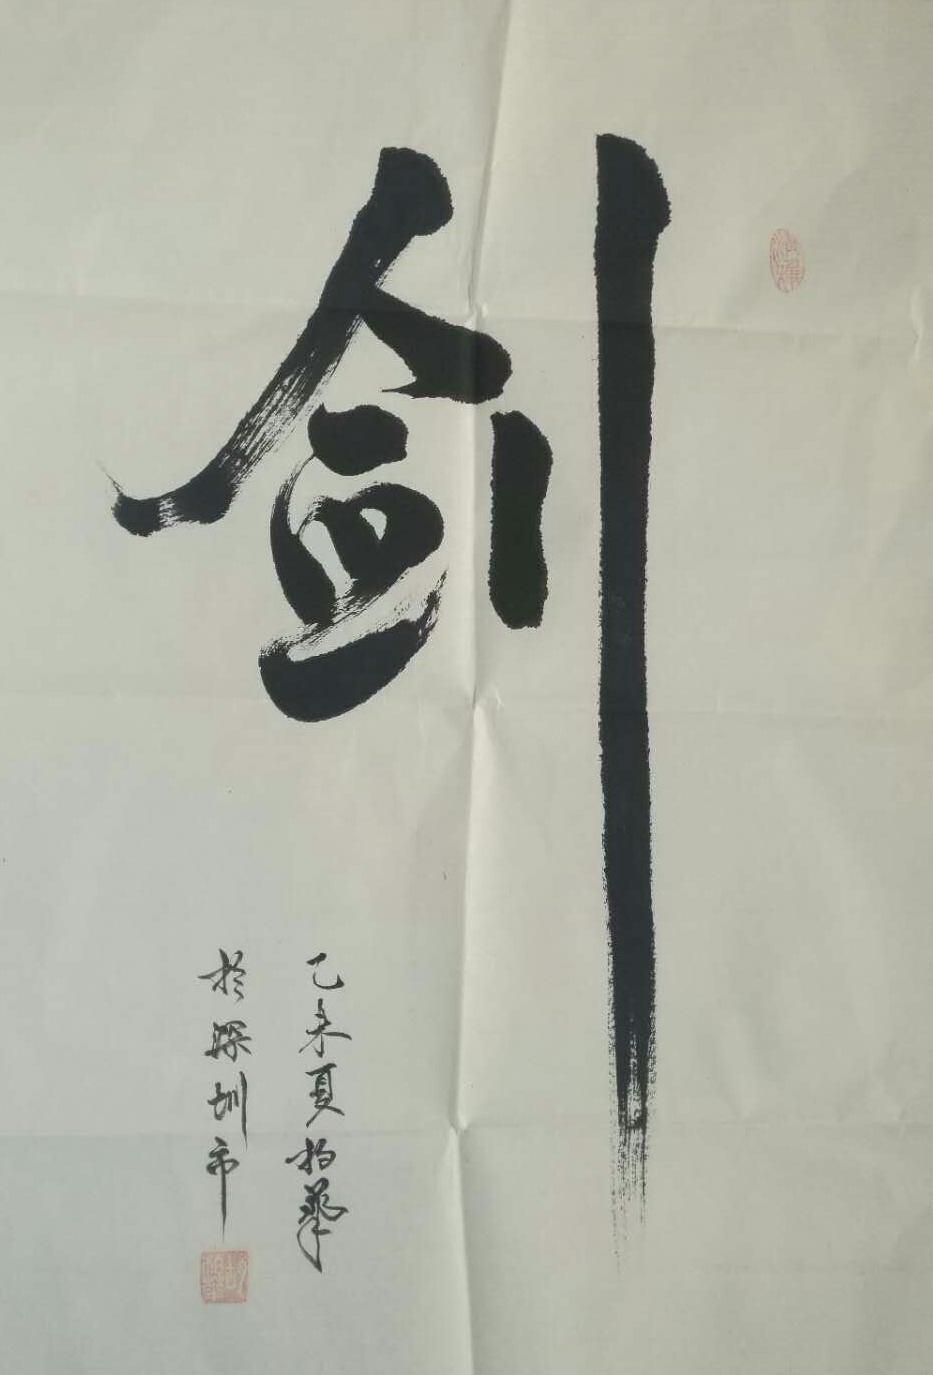 剑
乙未夏
於深圳市